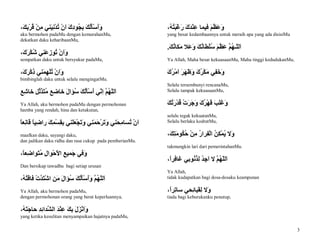 وَأَسْأَلُكَ بِجُودِكَ اَنْ تُدْنِيَني مِنْ قُرْبِكَ،
aku bermohon padaMu dengan kemurahanMu,
dekatkan daku keharibaanMu,
وَاَنْ تُوزِعَني شُكْرَكَ،
sempatkan daku untuk bersyukur padaMu,
وَاَنْ تُلْهِمَني ذِكْرَكَ،
bimbinglah daku untuk selalu mengingatMu.
اَللّـهُمَّ اِنّي اَسْأَلُكَ سُؤالَ خاضِعٍ مُتَذَلِّلٍ خاشِعٍ
Ya Allah, aku bermohon padaMu dengan permohonan
hamba yang rendah, hina dan ketakutan,
اَنْ تُسامِحَني وَتَرْحَمَني وَتَجْعَلَني بِقِسْمِكَ راضِياً قانِعاً
maafkan daku, sayangi daku,
dan jadikan daku ridha dan rasa cukup pada pemberianMu.
وَفي جَميعِ الاَحْوالِ مُتَواضِعاً،
Dan bersikap tawadhu bagi setiap urusan
اَللّـهُمَّ وَأَسْأَلُكَ سُؤالَ مَنِ اشْتَدَّتْ فاقَتُهُ،
Ya Allah, aku bermohon padaMu,
dengan permohonan orang yang berat keperluannya.
وَاَنْزَلَ بِكَ عِنْدَ الشَّدائِدِ حاجَتَهُ،
yang ketika kesulitan menyampaikan hajatnya padaMu,
وَعَظُمَ فيما عِنْدَكَ رَغْبَتُهُ،
yang besar kedambaannya untuk meraih apa yang ada disisiMu
اَللّـهُمَّ عَظُمَ سُلْطانُكَ وَعَلا مَكانُكَ،
Ya Allah, Maha besar kekuasaanMu, Maha tinggi kedudukanMu,
وَخَفِي مَكْرُكَ وَظَهَرَ اَمْرُكَ
Selalu tersembunyi rencanaMu,
Selalu tampak kekuasaanMu,
وَغَلَبَ قَهْرُكَ وَجَرَتْ قُدْرَتُكَ
selalu tegak kekuatanMu,
Selalu berlaku kodratMu,
وَلا يُمْكِنُ الْفِرارُ مِنْ حُكُومَتِكَ،
takmungkin lari dari pemerintahanMu.
اَللّـهُمَّ لا اَجِدُ لِذُنُوبي غافِراً،
Ya Allah,
tidak kudapatkan bagi dosa-dosaku keampunan
وَلا لِقَبائِحي ساتِراً،
tiada bagi keburukanku penutup,
3